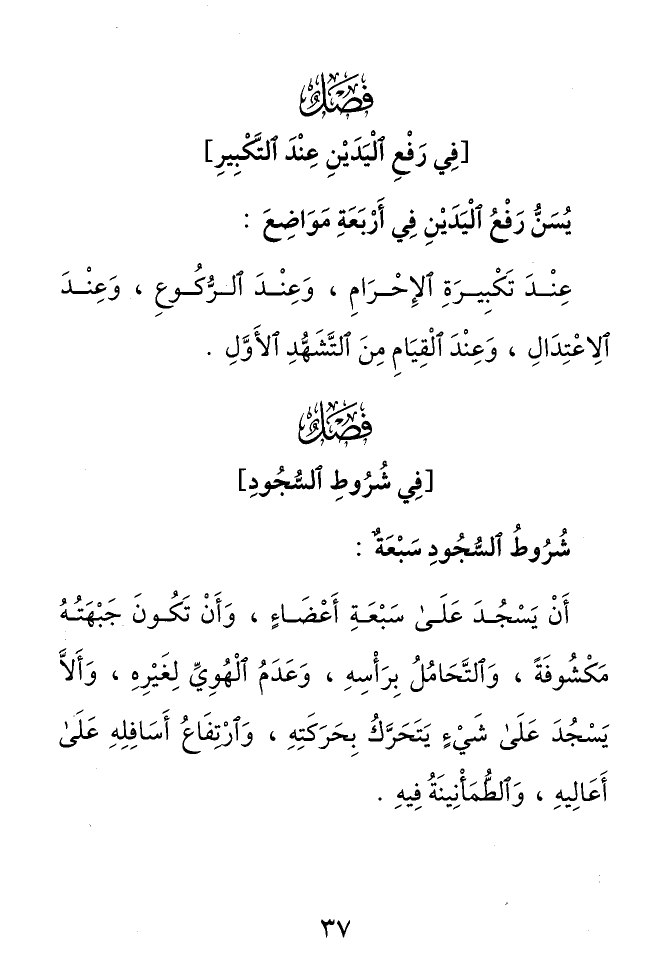 فَصْلٌ
[فِي رَفْعِ ٱلْيَدَيْنِ عِنْدَ ٱلتَّكْبِيرِ]
يُسَنُّ رَفْعُ ٱلْيَدَيْنِ فِي أَرْبَعَةِ مَوَاضِعَ :
عِنْدَ تَكْبِيرَةِ ٱلإِحْرَامِ ، وَعِنْدَ ٱلرُّكُوعِ ، وَعِنْدَ
ٱلِاعْتِدَالِ ، وَعِنْدَ ٱلْقِيَامِ مِنَ ٱلتَّشَهُّدِ ٱلأَوَّلِ .
فَصْلٌ
[فِي شُرُوطِ ٱلسُّجُودِ]
شُرُوطُ ٱلسُّجُودِ سَبْعَةٌ :
أَنْ يَسْجُدَ عَلَىٰ سَبْعَةِ أَعْضَاءٍ ، وَأَنْ تَكُونَ جَبْهَتُهُ
مَكْشُوفَةً ، وَٱلتَّحَامُلُ بِرَأْسِهِ ، وَعَدَمُ ٱلْهُوِيِّ لِغَيْرِهِ ، وَأَلاَّ
يَسْجُدَ عَلَىٰ شَيْءٍ يَتَحَرَّكُ بِحَرَكَتِهِ ، وَٱرْتِفَاعُ أَسَافِلِهِ عَلَىٰ
أَعَالِيهِ ، وَٱلطُّمَأْنِينَةُ فِيهِ .
٣٧